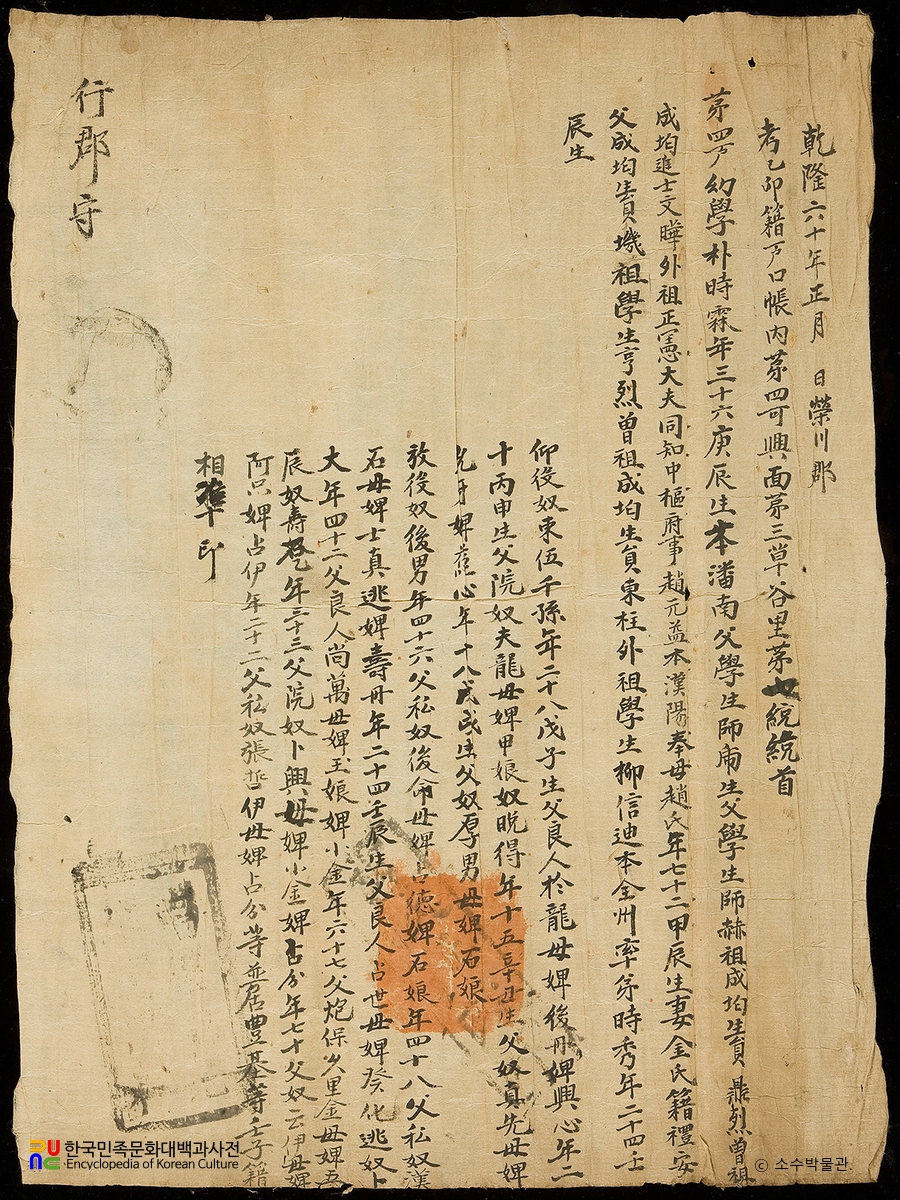 乾隆六十年正月 日榮川郡
考乙卯籍戶口帳內第四可興面第三草谷里第七統統首
第四戶幼學朴時霖年三十六庚辰生本潘南父學生師甫生父學生師赫祖成均生員鼎烈曾祖
成均進士文曄外祖正憲大夫同知中樞府事趙元益本漢陽奉母趙氏年七十二甲辰生妻金氏籍禮安
父成均生員墣祖學生亨烈曾祖成均生員東柱外祖學生柳信迪本全州率弟時秀年二十四壬
辰生
仰役奴東伍千孫年二十八戊子生父良人於龍母婢後丹婢興心年二
十丙申生父院奴夫龍母婢甲娘奴晩得年十五辛丑生父奴眞先母婢
先丹婢舊心年十八戊戌生父奴厚男母婢石娘
放役奴後男年四十六父私奴後命母婢占德婢石娘年四十八父私奴漢
石母婢士真逃婢壽丹年二十四壬辰生父良人占世母婢癸化逃奴卜
大年四十二父良人尚萬母婢玉娘婢小金年六十七父炮保少里金母婢
辰奴壽 年三十三父院奴卜興母婢小金婢占分年七十父奴云伊母婢
阿只婢占伊年二十二父私奴張哲伊母婢占分等並居豊基等壬子籍
相準印
行郡守
한국민족문화대백과사전
Encyclopedia of Korean Culture
© 소수박물관.